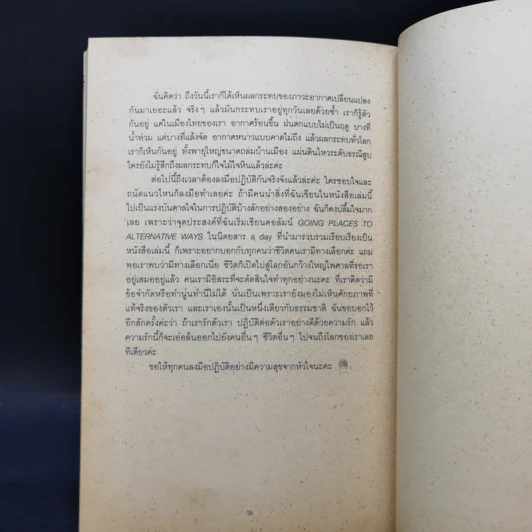 ฉันคิดว่า ถึงวันนี้เราก็ได้เห็นผลกระทบของภาวะอากาศเปลี่ยนแปลง
กันมาเยอะแล้ว จริงๆ แล้วมันกระทบเราอยู่ทุกวันเลยด้วยซ้ำ เราก็รู้ตัว
กันอยู่ แค่ในเมืองไทยของเรา อากาศร้อนขึ้น ฝนตกแบบไม่เป็นฤดู บางที
น้ำท่วม แต่บางที่แล้งจัด อากาศหนาวแบบคาดไม่ถึง แล้วผลกระทบทั่วโลก
เราก็เห็นกันอยู่ ทั้งพายุใหญ่ขนาดถล่มบ้านเมือง แผ่นดินไหวระดับธรณีสูบ
ใครยังไม่รู้สึกถึงผลกระทบก็ใจไม้ไส้หินแล้วล่ะค่ะ
ต่อไปนี้ถึงเวลาต้องลงมือปฏิบัติกันจริงจังแล้วล่ะค่ะ ใครชอบใจและ
ถนัดแนวไหนก็ลงมือทำเลยค่ะ ถ้ามีคนนำสิ่งที่ฉันเขียนในหนังสือเล่มนี้
ไปเป็นแรงบันดาลใจในการปฏิบัติบ้างสักอย่างสองอย่าง ฉันก็คงปลื้มใจมาก
เลย เพราะว่าจุดประสงค์ที่ฉันเริ่มเขียนคอลัมน์ GOING PLACES TO
ALTERNATIVE WAYS ในนิตยสาร a day ที่นำมารวบรวมเรียบเรียงเป็น
หนังสือเล่มนี้ ก็เพราะอยากบอกกับทุกคนว่าชีวิตคนเรามีทางเลือกค่ะ แถม
พอเราพบว่ามีทางเลือกเนี่ย ชีวิตก็เปิดไปสู่โลกอันกว้างใหญ่ไพศาลที่รอเรา
อยู่เสมออยู่แล้ว คนเรามีอิสระที่จะตัดสินใจทำทุกอย่างนะคะ ที่เราคิดว่ามี
ข้อจำกัดหรือทำนู่นทำนี่ไม่ได้ นั่นเป็นเพราะเรายังมองไม่เห็นศักยภาพที่
แท้จริงของตัวเรา และเราเองนั้นเป็นหนึ่งเดียวกับธรรมชาติ ฉันขอบอกไว้
อีกสักครั้งค่ะว่า ถ้าเรารักตัวเรา ปฏิบัติต่อตัวเราอย่างดีด้วยความรัก แล้ว
ความรักนี้ก็จะเอ่อล้นออกไปยังคนอื่นๆ ชีวิตอื่นๆ ไปจนถึงโลกของเราเลย
ทีเดียวค่ะ
ขอให้ทุกคนลงมือปฏิบัติอย่างมีความสุขจากหัวใจนะคะ